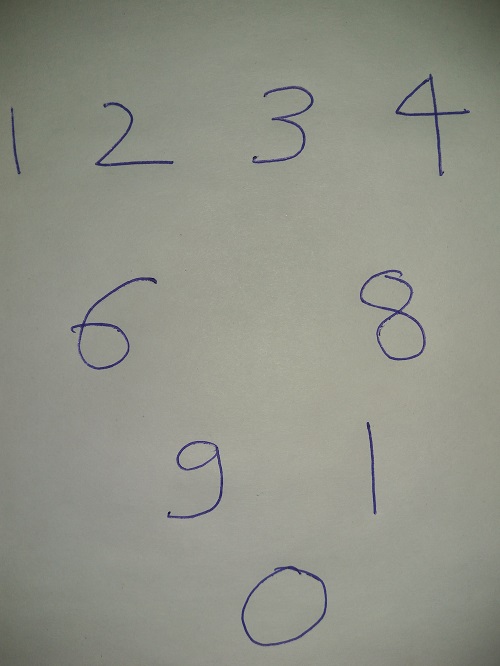 1 2 3 4
6 8
9 1
0